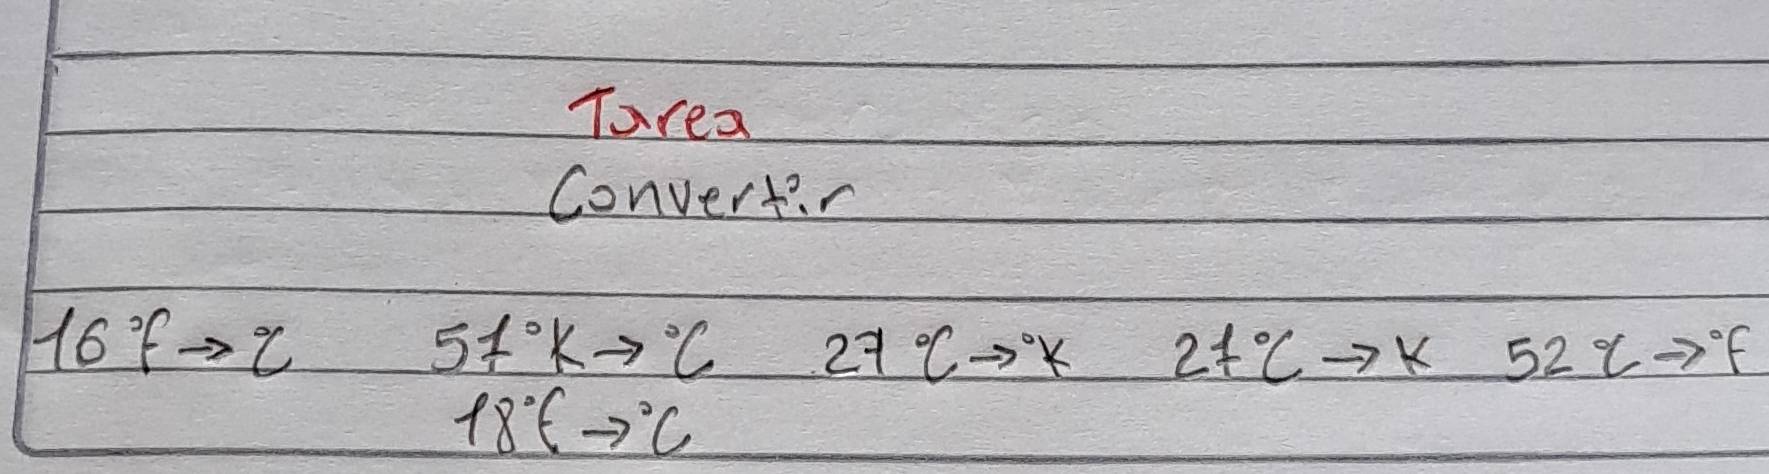 Tarea
Convertir
16°f → °c 57°K → °C 27 °C → °K 27°C → K 52 °c → °F
18°f → °C